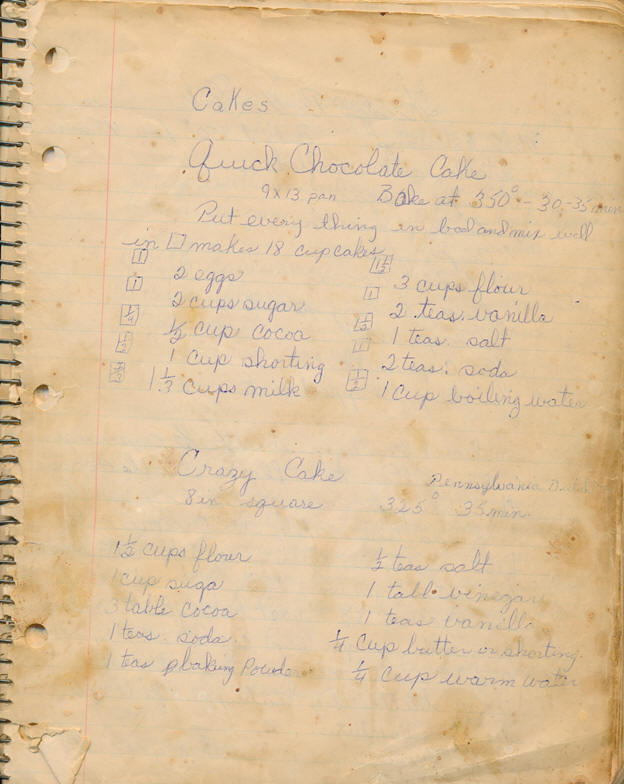 Cakes
Quick Chocolate Cake
9x13 pan Bake at 350° - 30-35 min
Put every thing in bool and mix well
in □ makes 18 cupcakes
1 2 eggs
1 2 cups sugar
1/4 1/2 cup cocoa
1/2 1 cup shorting
2/3 1 1/3 cups milk
1 1/2 3 cups flour
1 2 teas. vanilla
1/2 1 teas. salt
1 2 teas. soda
1/2 1 cup boiling water
Crazy Cake
Pennsylvania Dutch
8 in square 325° 35 min.
1 1/2 cups flour
1 cup suga
3 table cocoa
1 teas. soda
1 teas baking Powder
1/2 teas salt
1 tabl. vinegar
1 teas vanilla
1/4 cup butter or shorting.
1/4 cup warm water